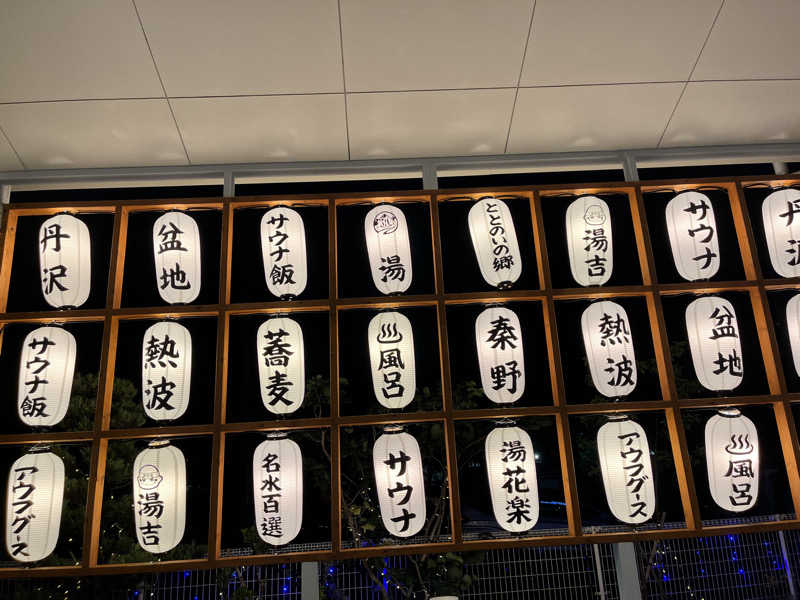 丹沢
盆地
サウナ飯
湯
ととのいの郷
湯吉
サウナ
丹沢
サウナ飯
熱波
蕎麦
♨風呂
秦野
熱波
盆地
アウフグース
湯吉
名水百選
サウナ
湯花楽
アウフグース
♨風呂